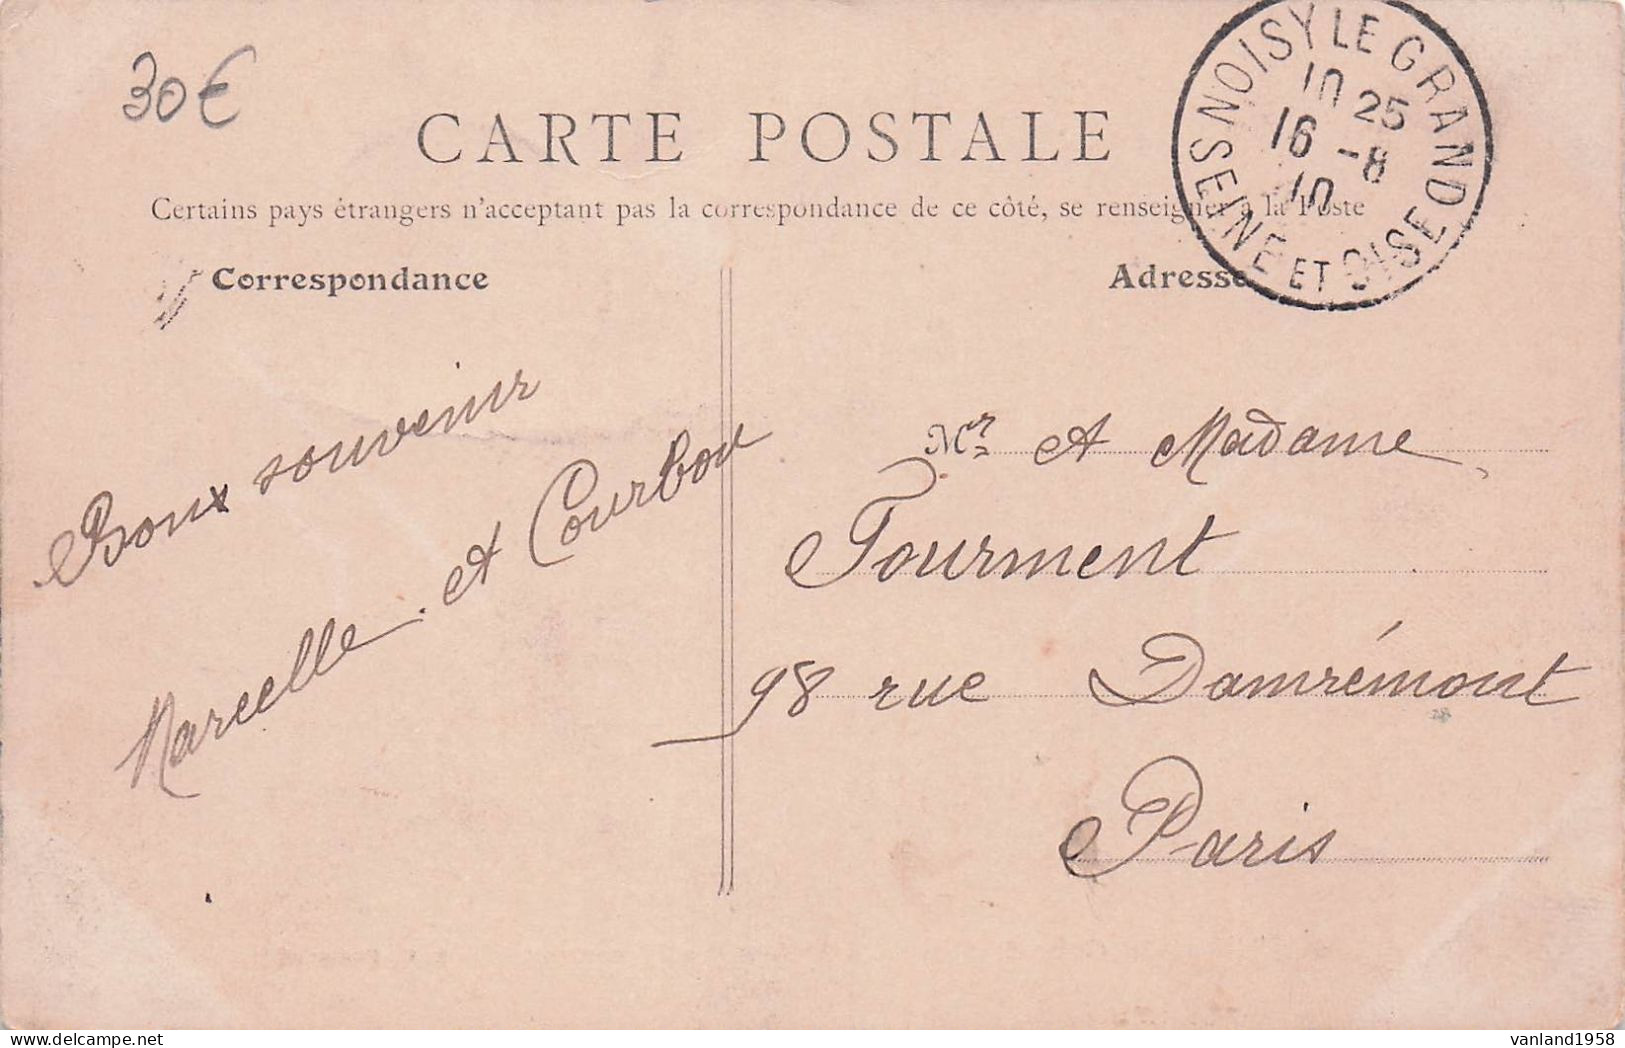 30€
CARTE POSTALE
Certains pays étrangers n'acceptant pas la correspondance de ce côté, se renseigner à la Poste
NOISY LE GRAND
10 25
16 -8
10
SEINE ET OISE
Correspondance
Adresse
Bons souvenir
Marcelle et Courbou
Mr et Madame
Tourment
98 rue Damrémont
Paris
vanland1958